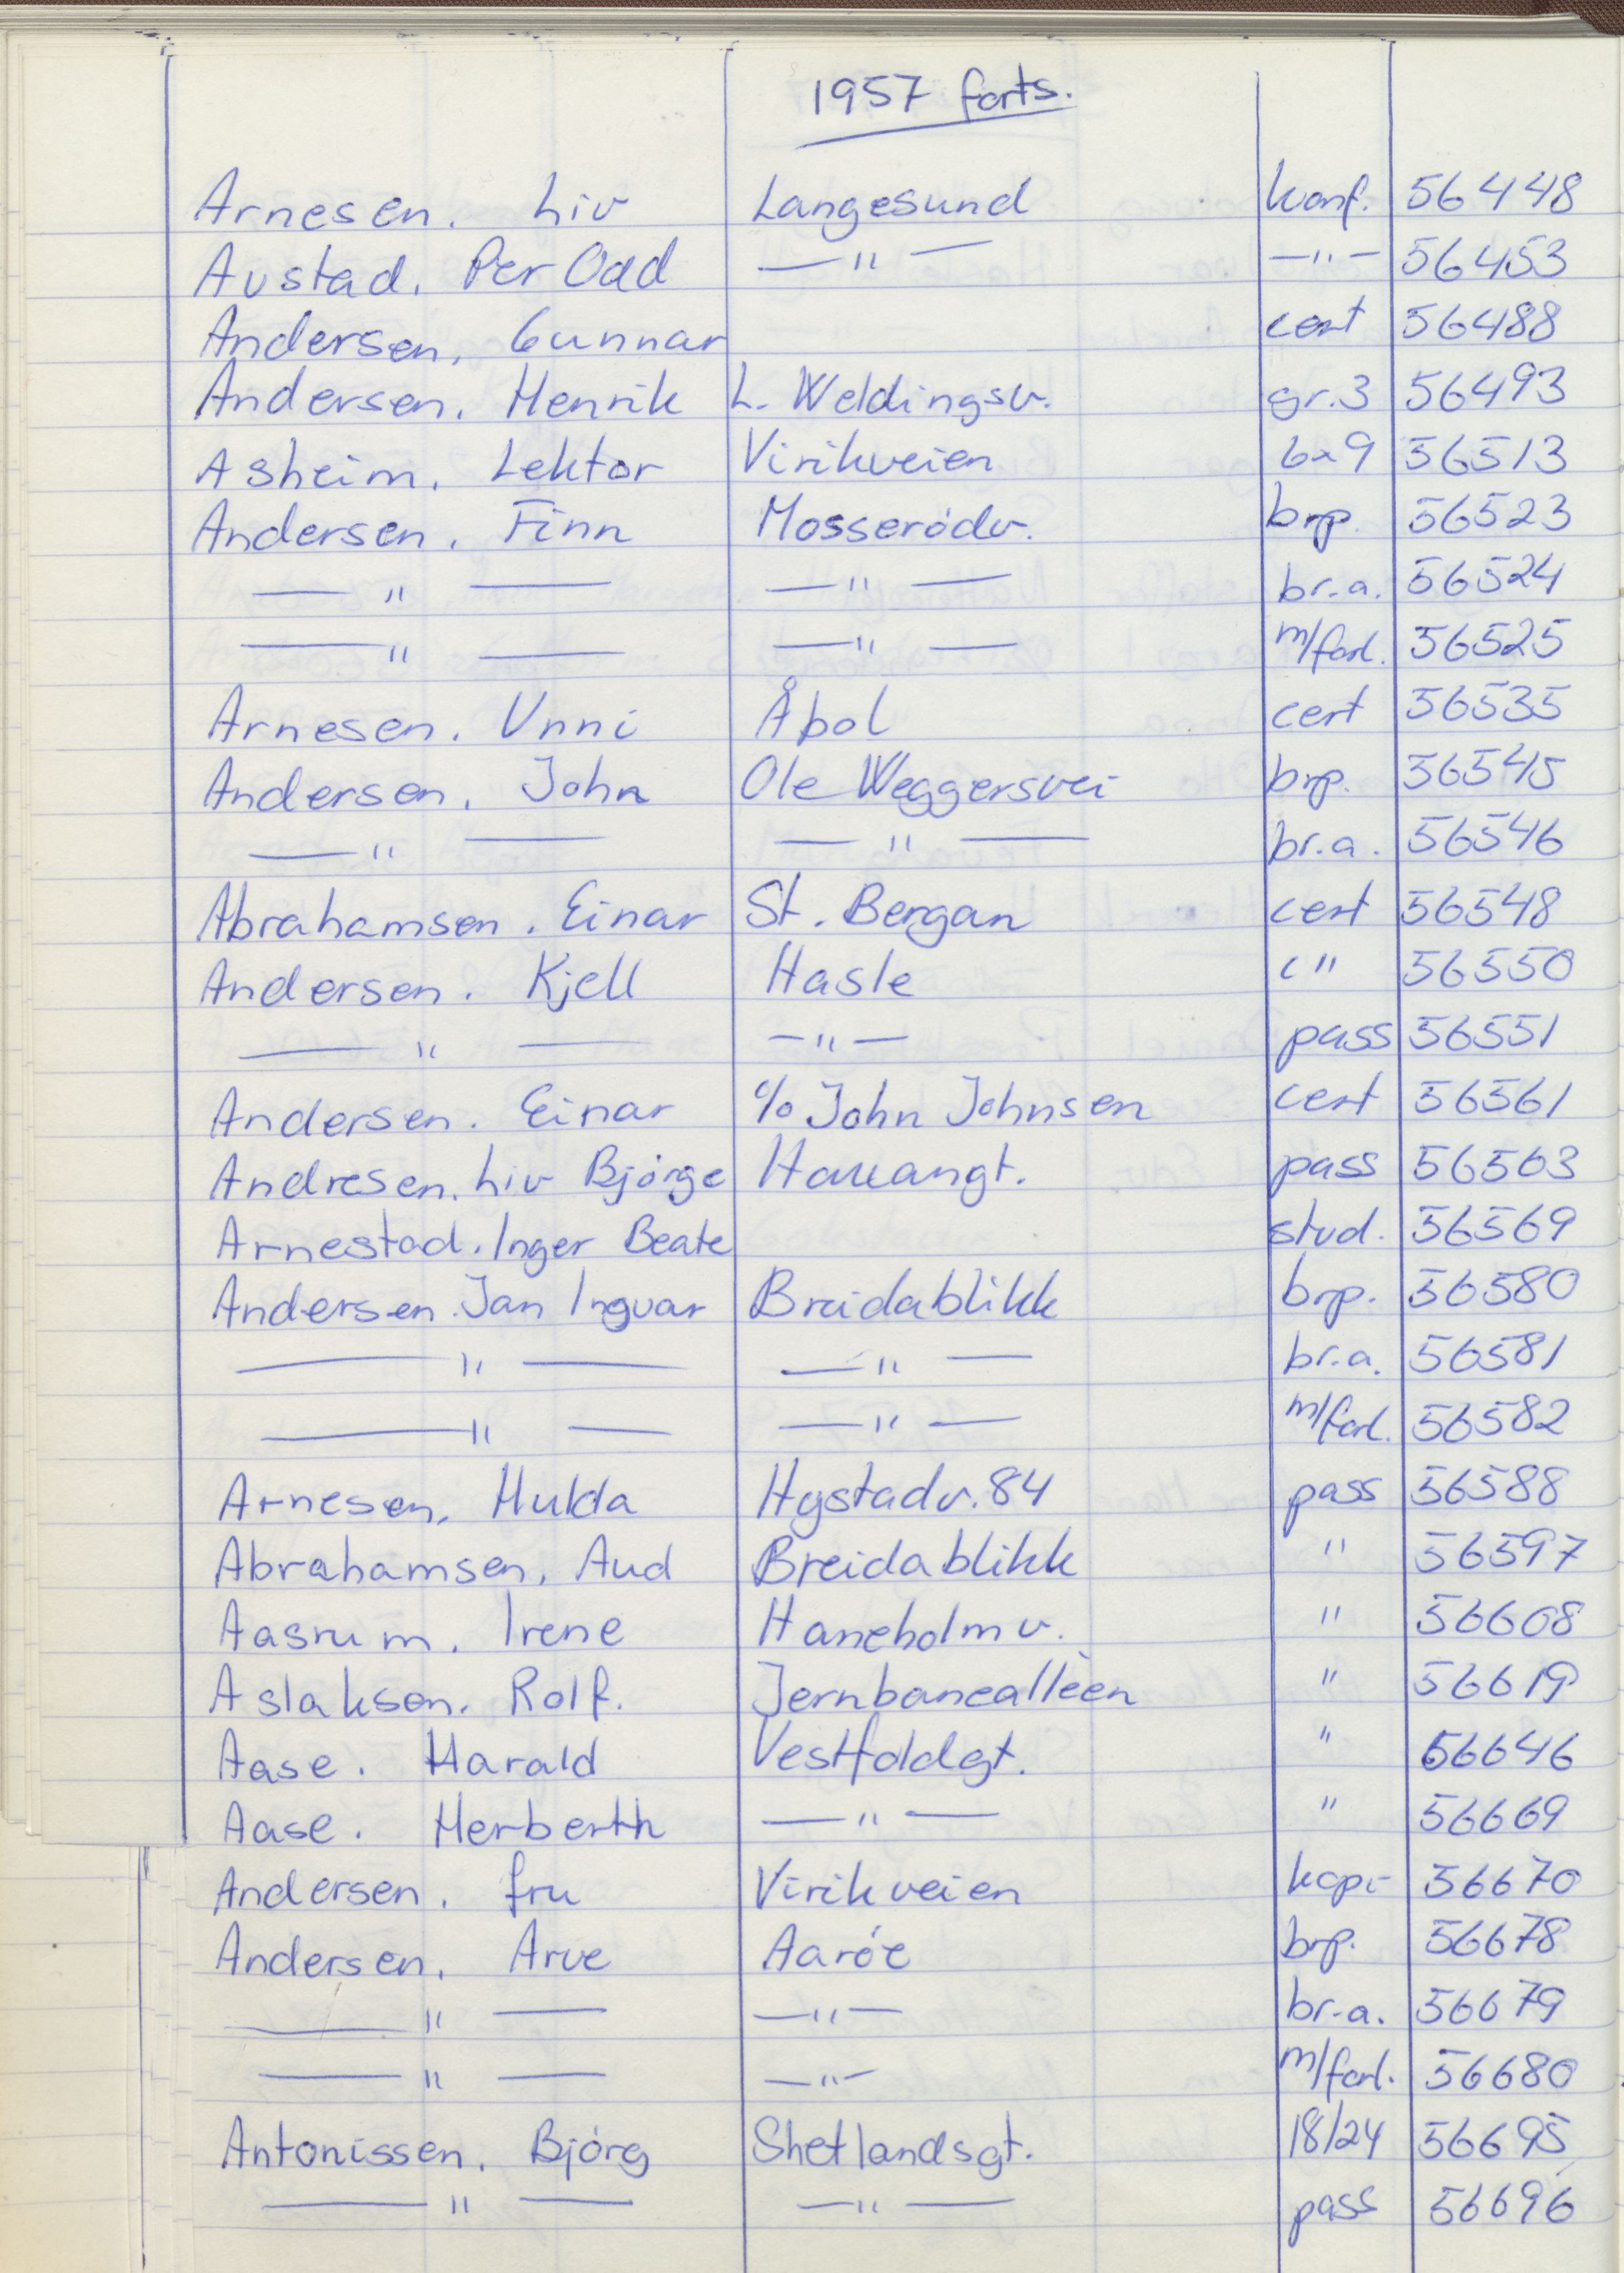 1957 forts.
Arnesen. Liv Langesund konf. 56448
Austad. Per Odd —"— —"— 56453
Andersen. Gunnar cert 56488
Andersen. Henrik L. Weldingsv. gr.3 56493
Asheim. Lektor Virikveien 6x9 56513
Andersen. Finn Mosserödv. brp. 56523
—"— —"— br.a. 56524
—"— —"— m/forl. 56525
Arnesen. Unni Åbol cert 56535
Andersen. John Ole Weggersvei brp. 56545
—"— —"— br.a. 56546
Abrahamsen. Einar St. Bergan cert 56548
Andersen. Kjell Hasle c" 56550
—"— —"— pass 56551
Andersen. Einar c/o John Johnsen cert 56561
Andresen. Liv Björge Haukangt. pass 56563
Arnestad. Inger Beate stud. 56569
Andersen. Jan Ingvar Breidablikk brp. 56580
—"— —"— br.a. 56581
—"— —"— m/forl. 56582
Arnesen. Hulda Hystadv. 84 pass 56588
Abrahamsen. Aud Breidablikk " 56597
Aasrum. Irene Haneholmv. " 56608
Aslaksen. Rolf. Jernbanealléen " 56619
Aase. Harald Vestfoldgt. " 56646
Aase. Herberth —"— " 56669
Andersen. fru Virikveien kopi- 56670
Andersen. Arve Aaröe brp. 56678
—"— —"— br.a. 56679
—"— —"— m/forl. 56680
Antonissen. Björg Shetlandsgt. 18/24 56695
—"— —"— pass 56696